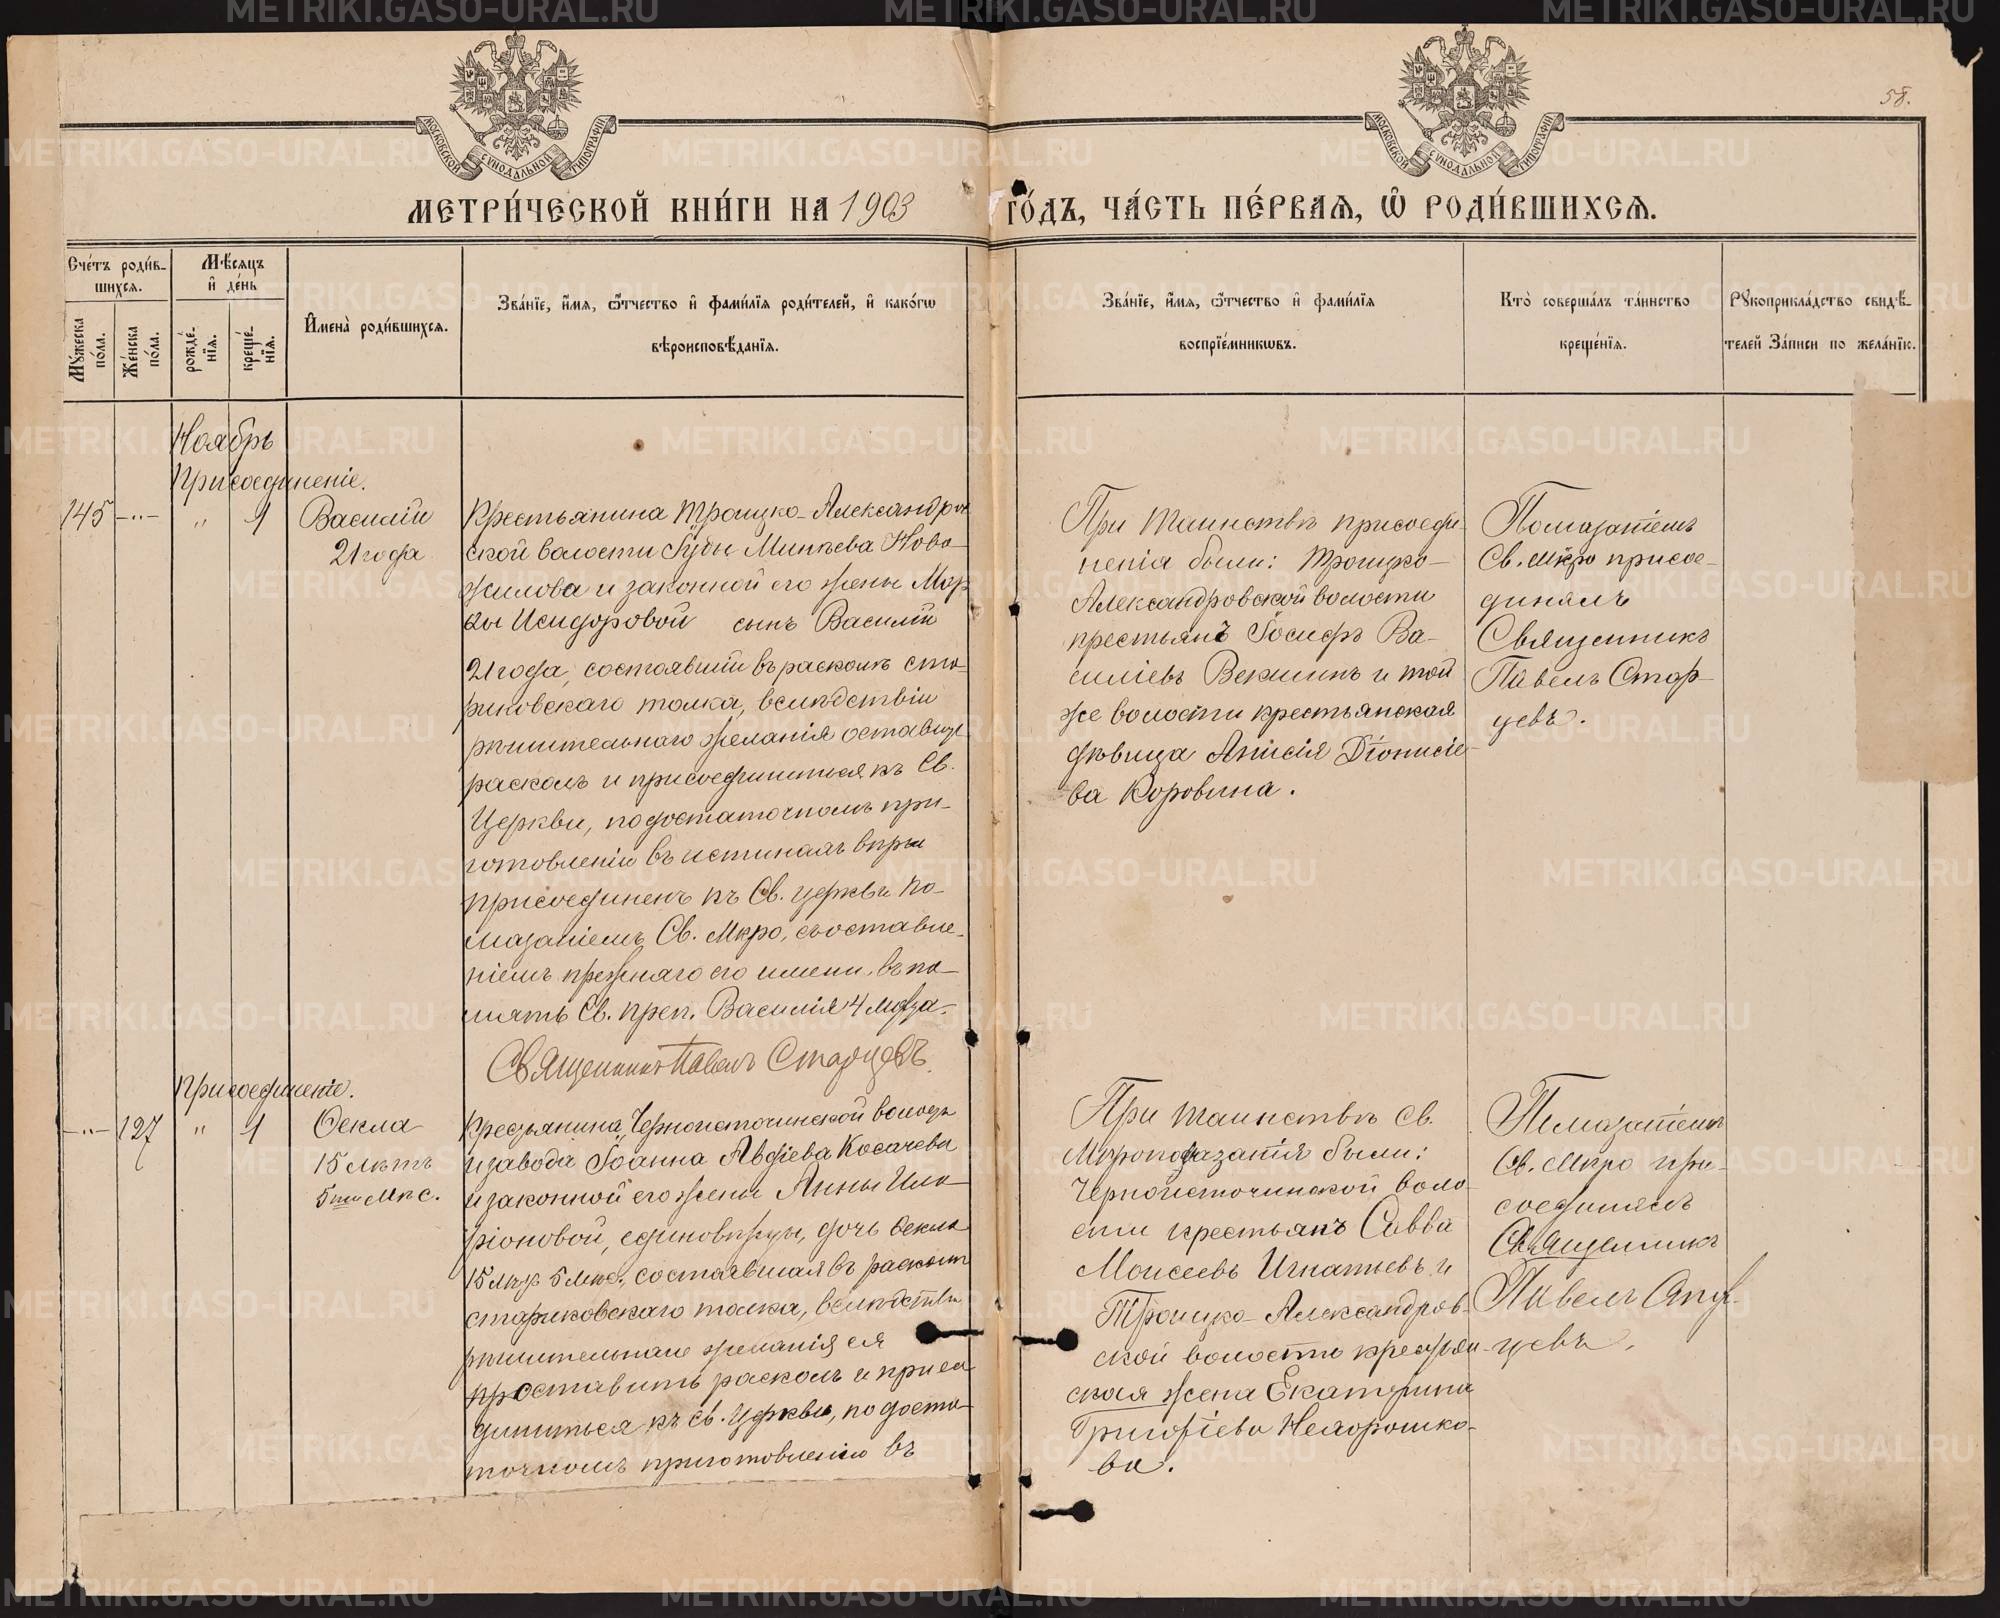 58.
МОСКОВСКОЙ СѴНОДАЛЬНОЙ ТИПОГРАФІИ
МОСКОВСКОЙ СѴНОДАЛЬНОЙ ТИПОГРАФІИ
МЕТРИ́ЧЕСКОЙ КНИ́ГИ НА 1903
ГО́ДЪ, ЧА́СТЬ ПЕ́РВАЯ, Ѡ РОДИ́ВШИХСЯ.
Сче́тъ роди́в-
шихся.
Мꙋжеска
по́ла.
Же́нска
по́ла.
Мѣ́сяцъ
и҆ де́нь
рожде́-
нїя.
креще́-
нїя.
И҆мена̀ роди́вшихся.
Зва́нїе, и҆́мя, ѻ҆́тчество и҆ фами́лїя роди́телей, и҆ како́гѡ
вѣроисповѣ́данїя.
Зва́нїе, и҆́мя, ѻ҆́тчество и҆ фами́лїя
воспрїе́мникѡвъ.
Кто̀ соверша́лъ та́инство
креще́нїя.
Рꙋкоприкла́дство свидѣ́-
телей За́писи по жела́нїю.
Ноябрь
Присоединеніе.
145 -"- " 1 Василій
21 года
Крестьянина Троицко-Александров
ской волости Гуды Минѣева Ново-
жилова и законной его жены Мар-
ѳы Исидоровой сынъ Василій
21 года, состоявшій въ расколѣ ста-
риковскаго толка, вслѣдствіи
рѣшительнаго желанія оставить
расколъ и присоединиться къ Св.
Церкви, по достаточномъ при-
готовленіи въ истинахъ вѣры
присоединенъ къ Св. церкви по-
мазаніемъ Св. Мѵро, съ оставле-
ніемъ прежняго его имени, въ па-
мять Св. преп. Василія 4 Мрта.
Священникъ Павелъ Старцевъ.
При таинствѣ присоеди-
ненія были: Троицко-
Александровской волости
крестьянъ Іосифъ Ва-
силіевъ Векшинъ и той
же волости крестьянская
дѣвица Анисія Діонисіе-
ва Коровина.
Помазаніемъ
Св. Мѵро присое-
динялъ
Священникъ
Павелъ Стар-
цевъ.
Присоединеніе.
-"- 127 " 1 Ѳекла
15 лѣтъ
5ти мѣс.
Крестьянина Черноисточинской волости
и завода Іоанна Авдіева Косачева
и законной его жены Анны Ила-
ріоновой, единовѣрцы, дочь Ѳекла
15 лѣтъ 5 мѣс. состоявшая въ расколѣ
стариковскаго толка, вслѣдствіи
рѣшительнаго желанія ея
оставить расколъ и присое
диниться къ Св. Церкви, по доста-
точномъ приготовленіи въ
При таинствѣ Св.
Мѵропомазанія были:
Черноисточинской воло-
сти крестьянъ Савва
Моисеевъ Игнатьевъ и
Троицко-Александров-
ской волости крестьян-
ская жена Екатерина
Григоріева Нехорошко-
ва.
Помазаніемъ
Св. Мѵро при-
соединялъ
Священникъ
Павелъ Стар-
цевъ.